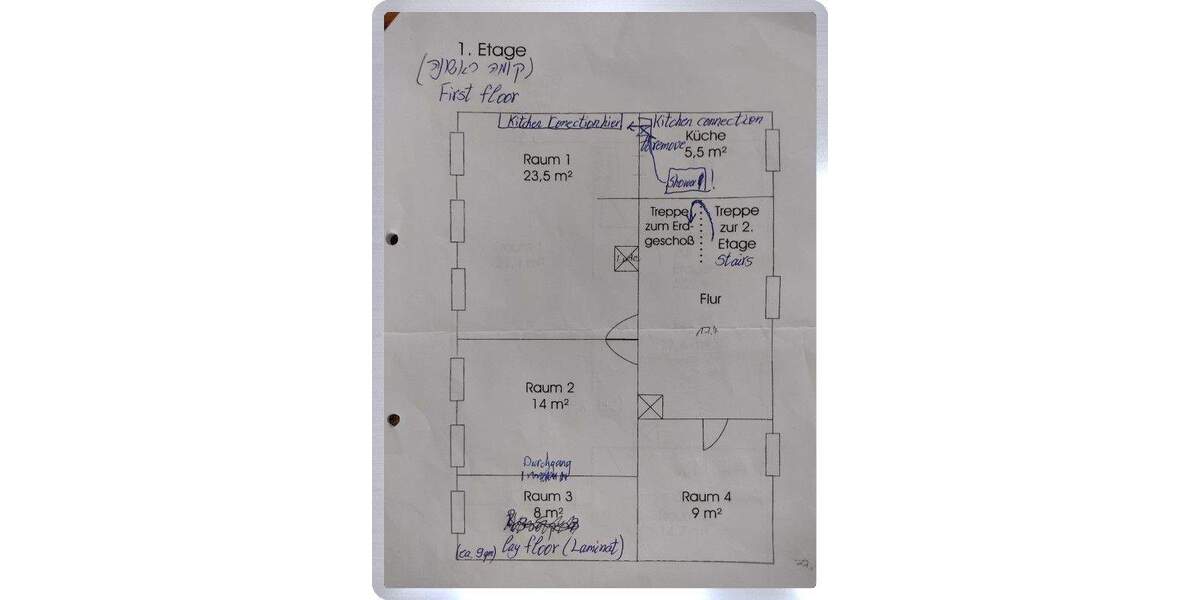 1. Etage
(קומה ראשונה)
First floor
Kitchen Conection hier
Kitchen connection
Küche
5,5 m²
to remove
Shower !
Raum 1
23,5 m²
Treppe
zum Erd-
geschoß
Treppe
zur 2.
Etage
Stairs
Flur
17.4
Raum 2
14 m²
Durchgang
Raum 3
8 m²
(ca. 9 qm) Lay floor (Laminat)
Raum 4
9 m²